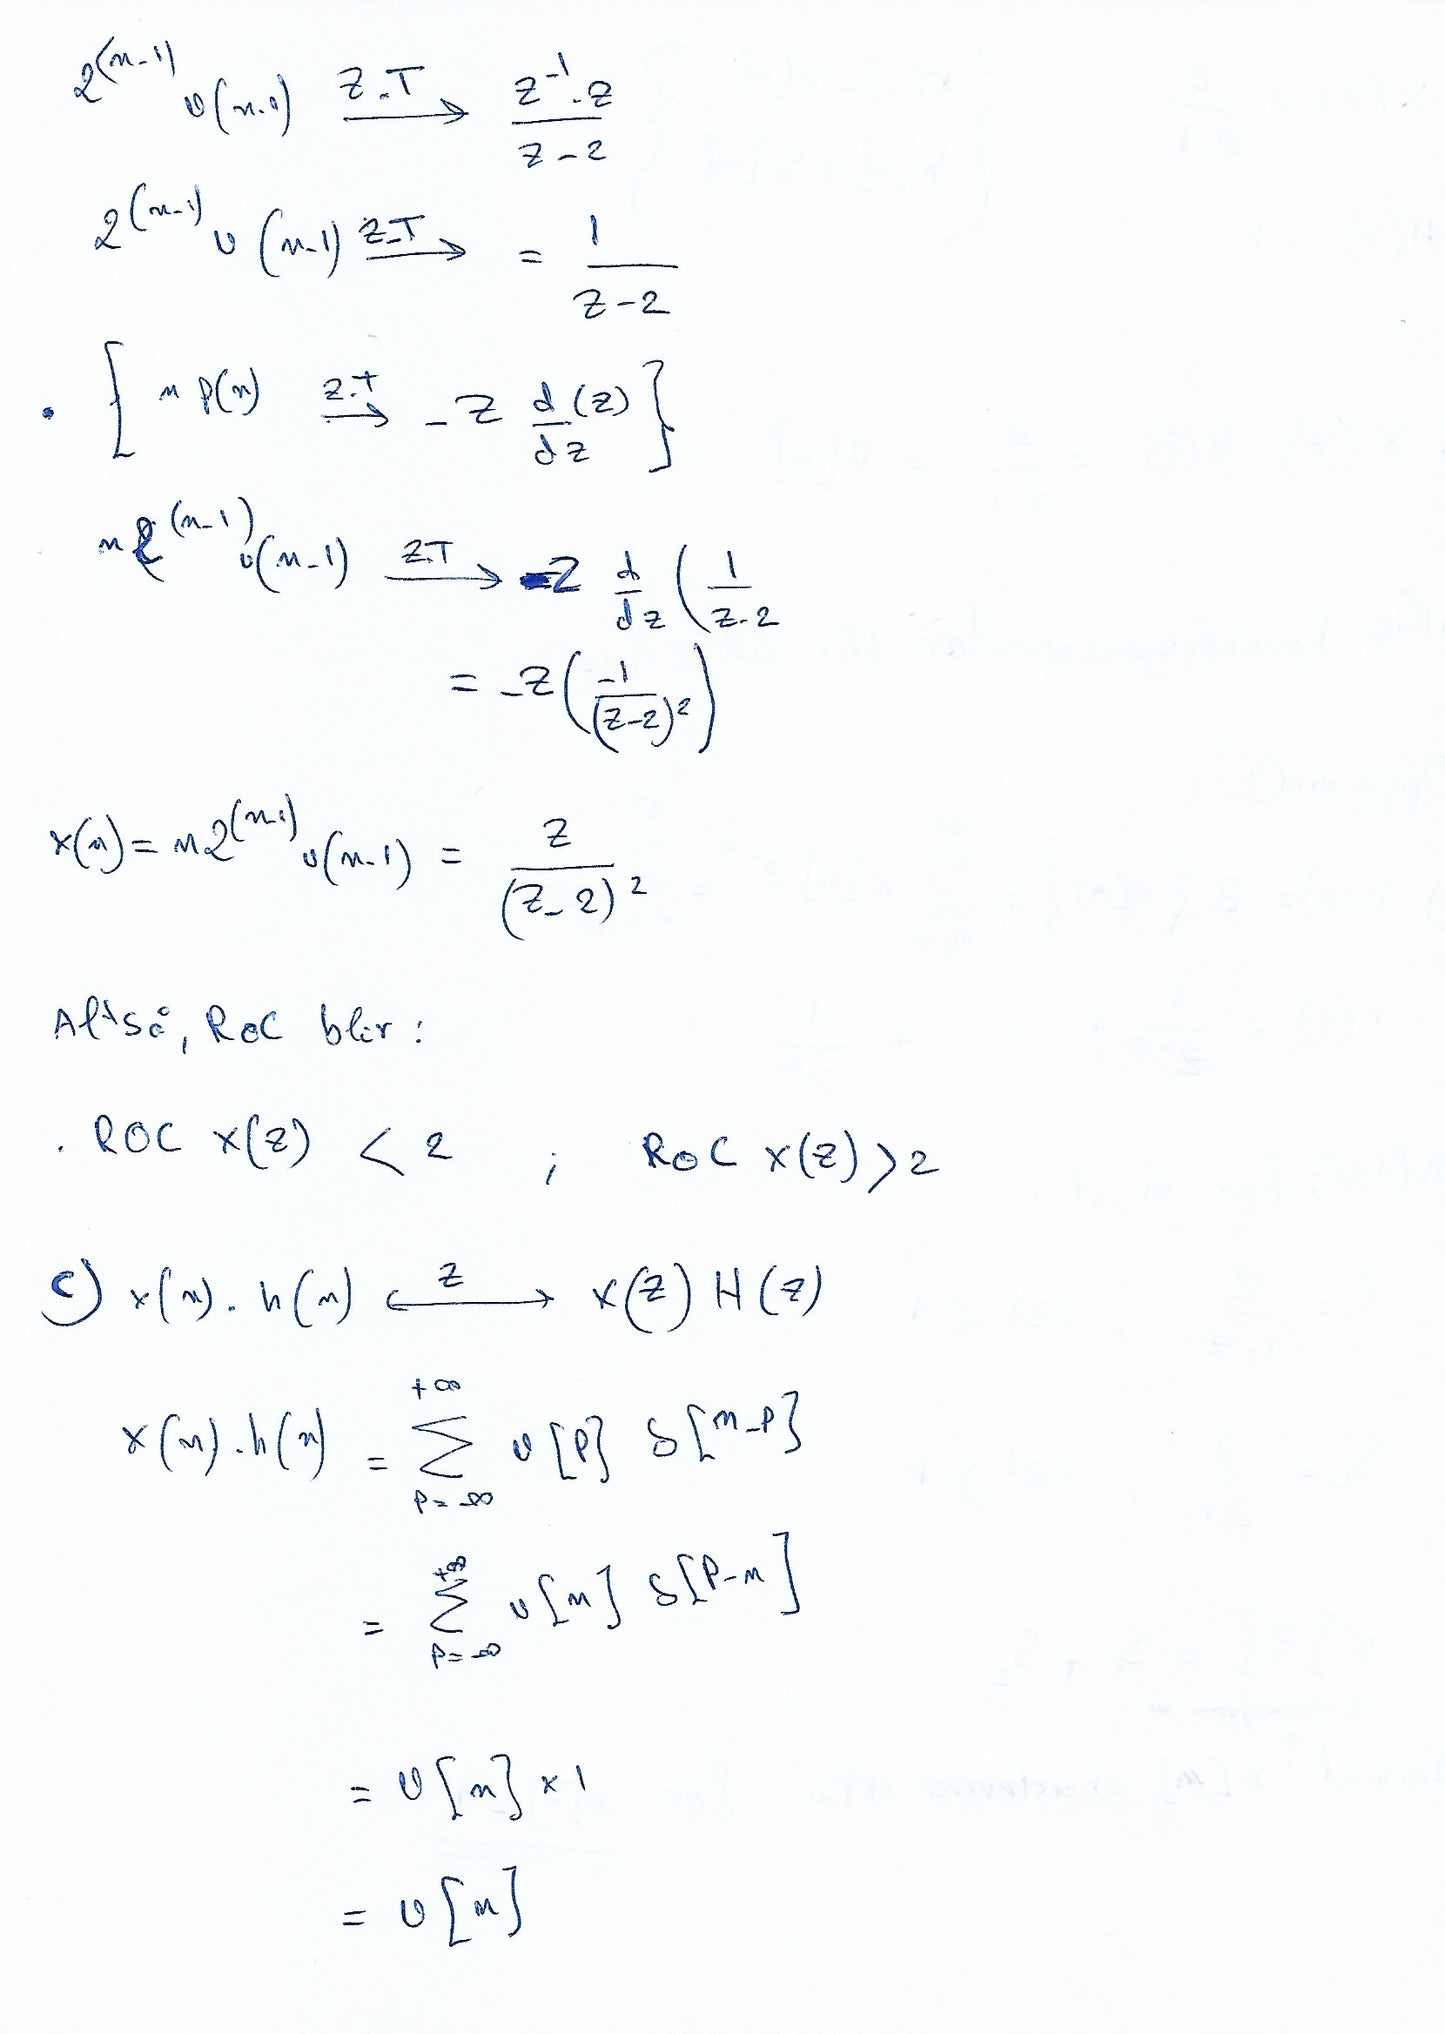 2^(n-1) u(n-1) Z.T → z^-1 . z / z-2
2^(n-1) u(n-1) Z.T → = 1 / z-2
. [ n p(n) z.T → -z d/dz (z) ]
n 2^(n-1) u(n-1) Z.T → -z d/dz ( 1 / z-2
= -z ( -1 / (z-2)² )
x(n) = n 2^(n-1) u(n-1) = z / (z-2)²
Altså, ROC blir :
. ROC x(z) < 2 ; ROC x(z) > 2
c) x(n) . h(n) ←z→ x(z) H(z)
x(n) . h(n) = Σ_{p=-∞}^{+∞} u[p] δ[n-p]
= Σ_{p=-∞}^{+∞} u[n] δ[p-n]
= u[n] × 1
= u[n]